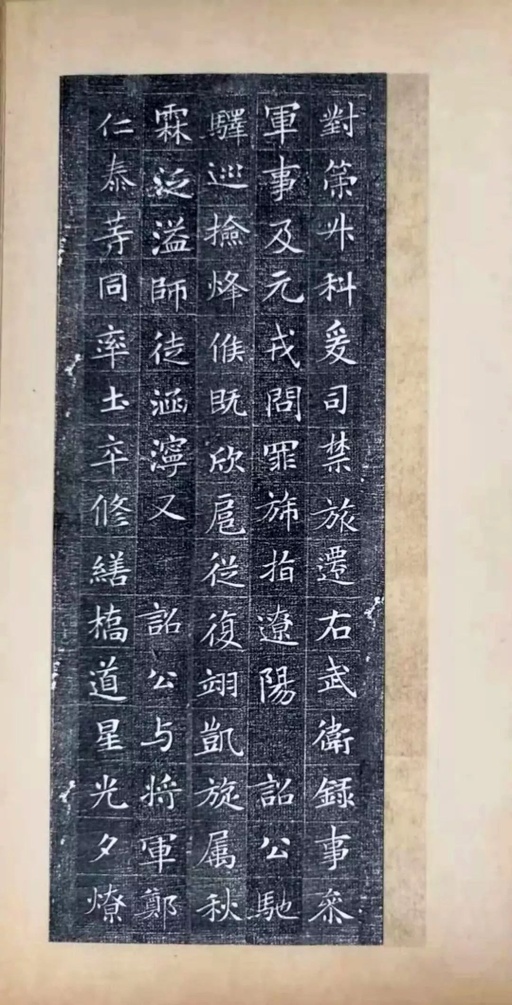 對策升科爰司禁旅遷右武衛録事叅
軍事及元戎問罪旆指遼陽 詔公馳
驛巡撿烽候既欣扈從復翊凱旋属秋
霖泛溢師徒涵濘又 詔公与將軍鄭
仁泰等同率士卒修繕橋道星光夕燎